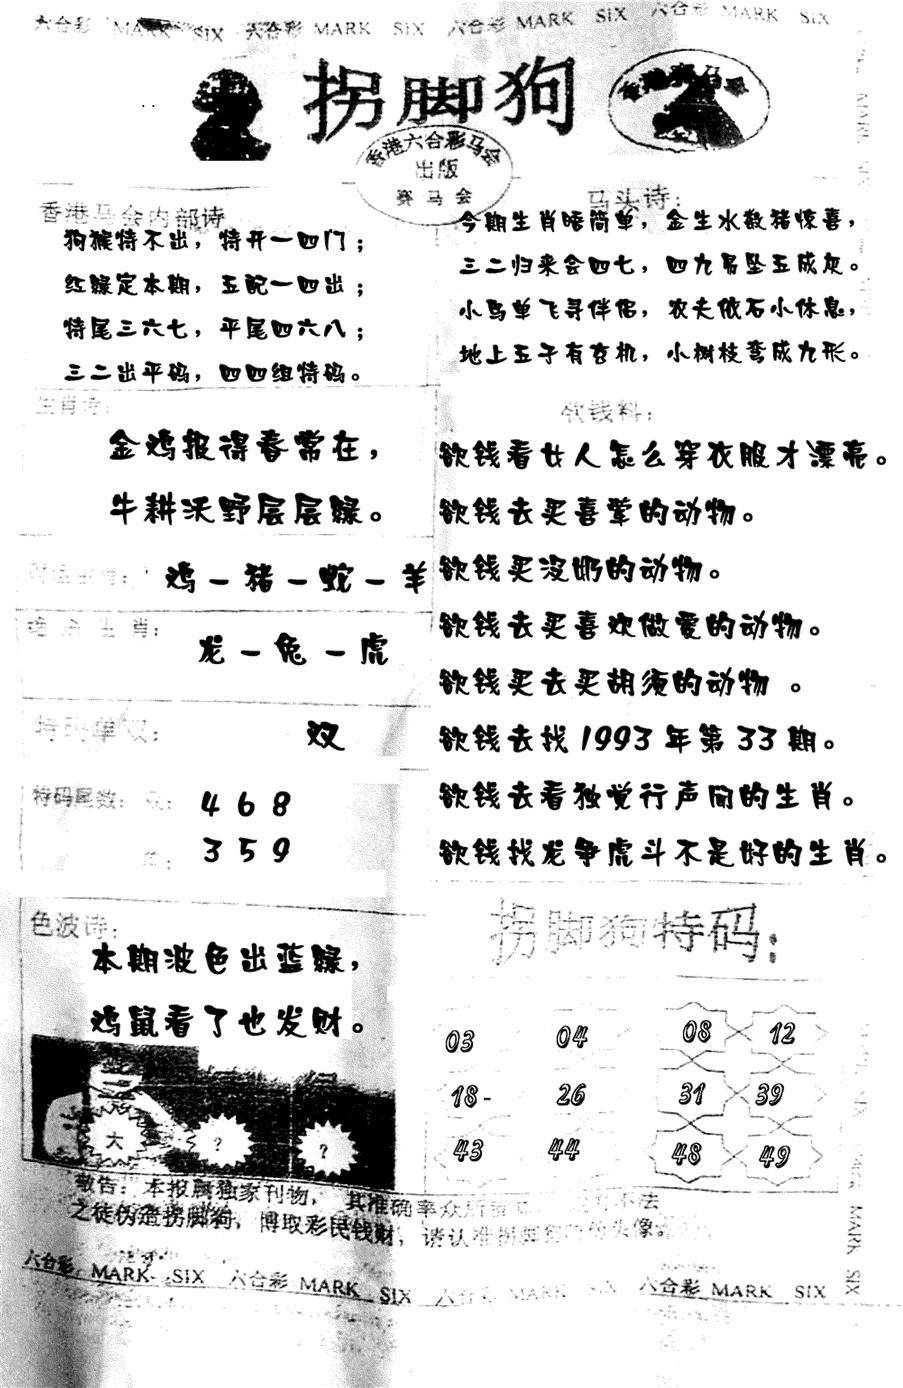 六合彩 MARK SIX 六合彩 MARK SIX 六合彩 MARK SIX 六合彩 MARK SIX
拐脚狗
香港赛马会
香港六合彩马会
出版
赛马会
香港马会内部诗
狗猴特不出，特开一四门；
红绿定本期，五配一四出；
特尾三六七，平尾四六八；
三二出平码，四四组特码。
马头诗：
今期生肖晤简单，金生水数猪惊喜，
三二归来会四七，四九吊坠五成灰。
小鸟单飞寻伴侣，农夫依石小休息，
地上五子有玄机，小树枝弯成九形。
生肖诗：
金鸡报得春常在，
牛耕沃野层层绿。
鸡－猪－蛇－羊
绝杀生肖：
龙－兔－虎
特码单双：
双
特码尾数：双：
4 6 8
单：
3 5 9
欲钱料：
欲钱看女人怎么穿衣服才漂亮。
欲钱去买喜荤的动物。
欲钱买没奶的动物。
欲钱去买喜欢做爱的动物。
欲钱买去买胡须的动物 。
欲钱去找1993年第33期。
欲钱去看独觉行声闻的生肖。
欲钱找龙争虎斗不是好的生肖。
色波诗：
本期波色出蓝绿，
鸡鼠看了也发财。
大 ？ ？
拐脚狗特码：
03 04 08 12
18- 26 31 39
43 44 48 49
敬告：本报属独家刊物，其准确率众所 不法
之徒伪造拐脚狗，博取彩民钱财，请认准拐脚狗 的头像。
六合彩 MARK SIX 六合彩 MARK SIX 六合彩 MARK SIX 六合彩 MARK SIX
MARK SIX